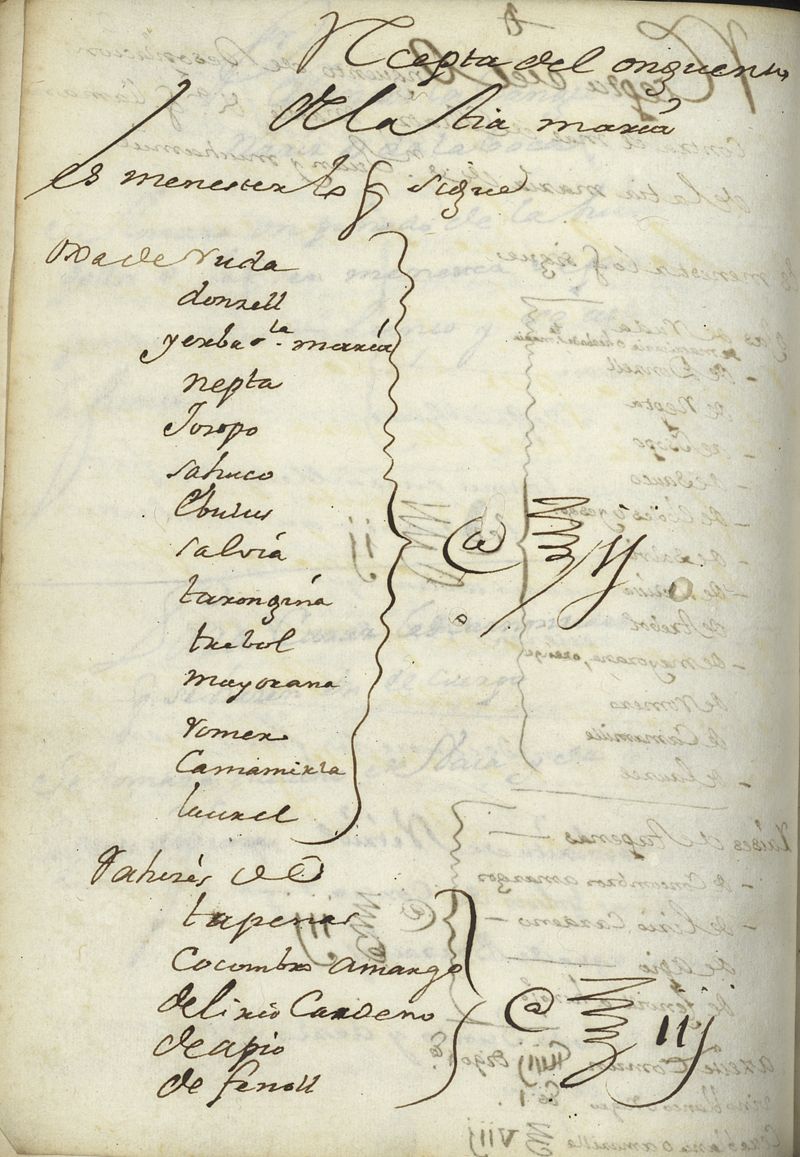 Recepta del onguento
de la tia maria
es menester lo q sigue
oxa de ruda
donzell
yerba sta. maria
nepta
Isopo
sahuco
Ebulus
salvia
tarongina
trebol
mayorana
romero
Camamirla
laurel
rahizes de
taperas
Cocombro amargo
de lirio Cardeno
de apio
de fenoll
@ ij
@ iij